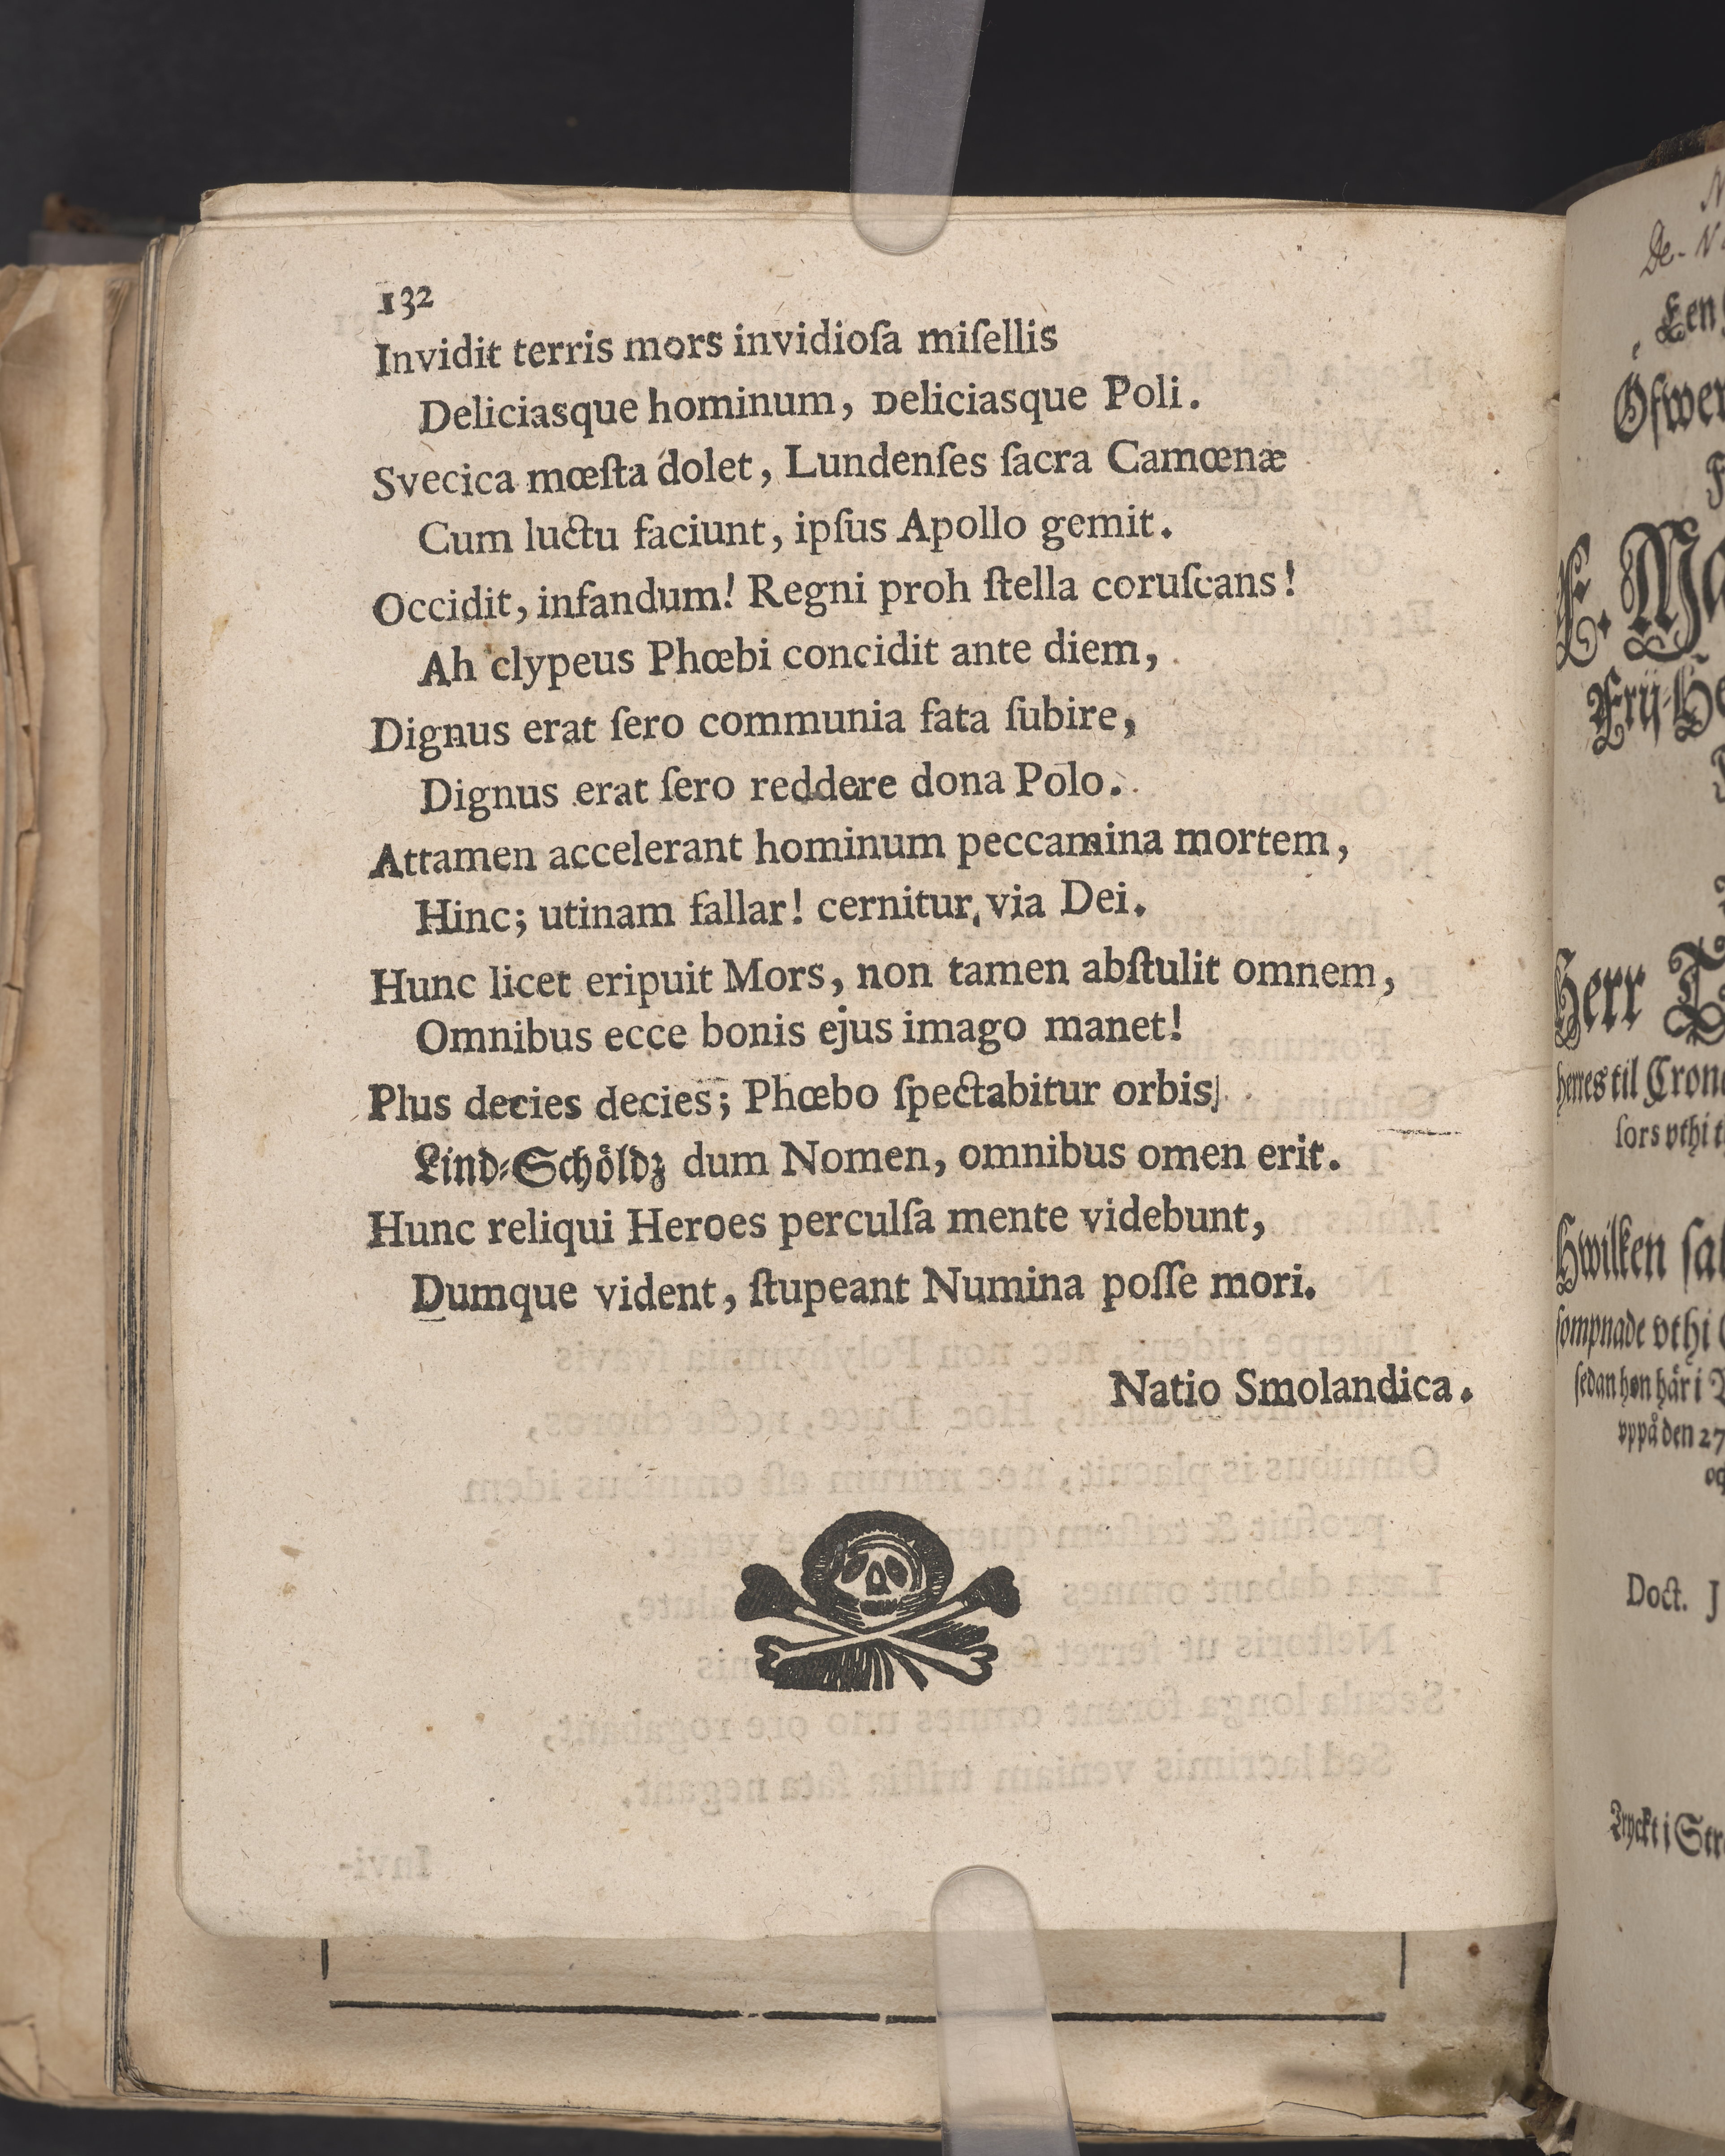 132
Invidit terris mors invidioſa miſellis
Deliciasque hominum, Deliciasque Poli.
Svecica mœſta dolet, Lundenſes ſacra Camœnæ
Cum luctu faciunt, ipſus Apollo gemit.
Occidit, infandum! Regni proh ſtella coruſcans!
Ah clypeus Phœbi concidit ante diem,
Dignus erat ſero communia fata ſubire,
Dignus erat ſero reddere dona Polo.
Attamen accelerant hominum peccamina mortem,
Hinc; utinam fallar! cernitur, via Dei.
Hunc licet eripuit Mors, non tamen abſtulit omnem,
Omnibus ecce bonis ejus imago manet!
Plus decies decies; Phœbo ſpectabitur orbis
Lind-Schöldz dum Nomen, omnibus omen erit.
Hunc reliqui Heroes perculſa mente videbunt,
Dumque vident, ſtupeant Numina poſſe mori.
Natio Smolandica.
De-
Een
Öfwer
Herr
herres til
ſors vthi
Hwilken
ſompnade vthi
ſedan hon här i
vppå den 27
Doct. J
Tryckt i